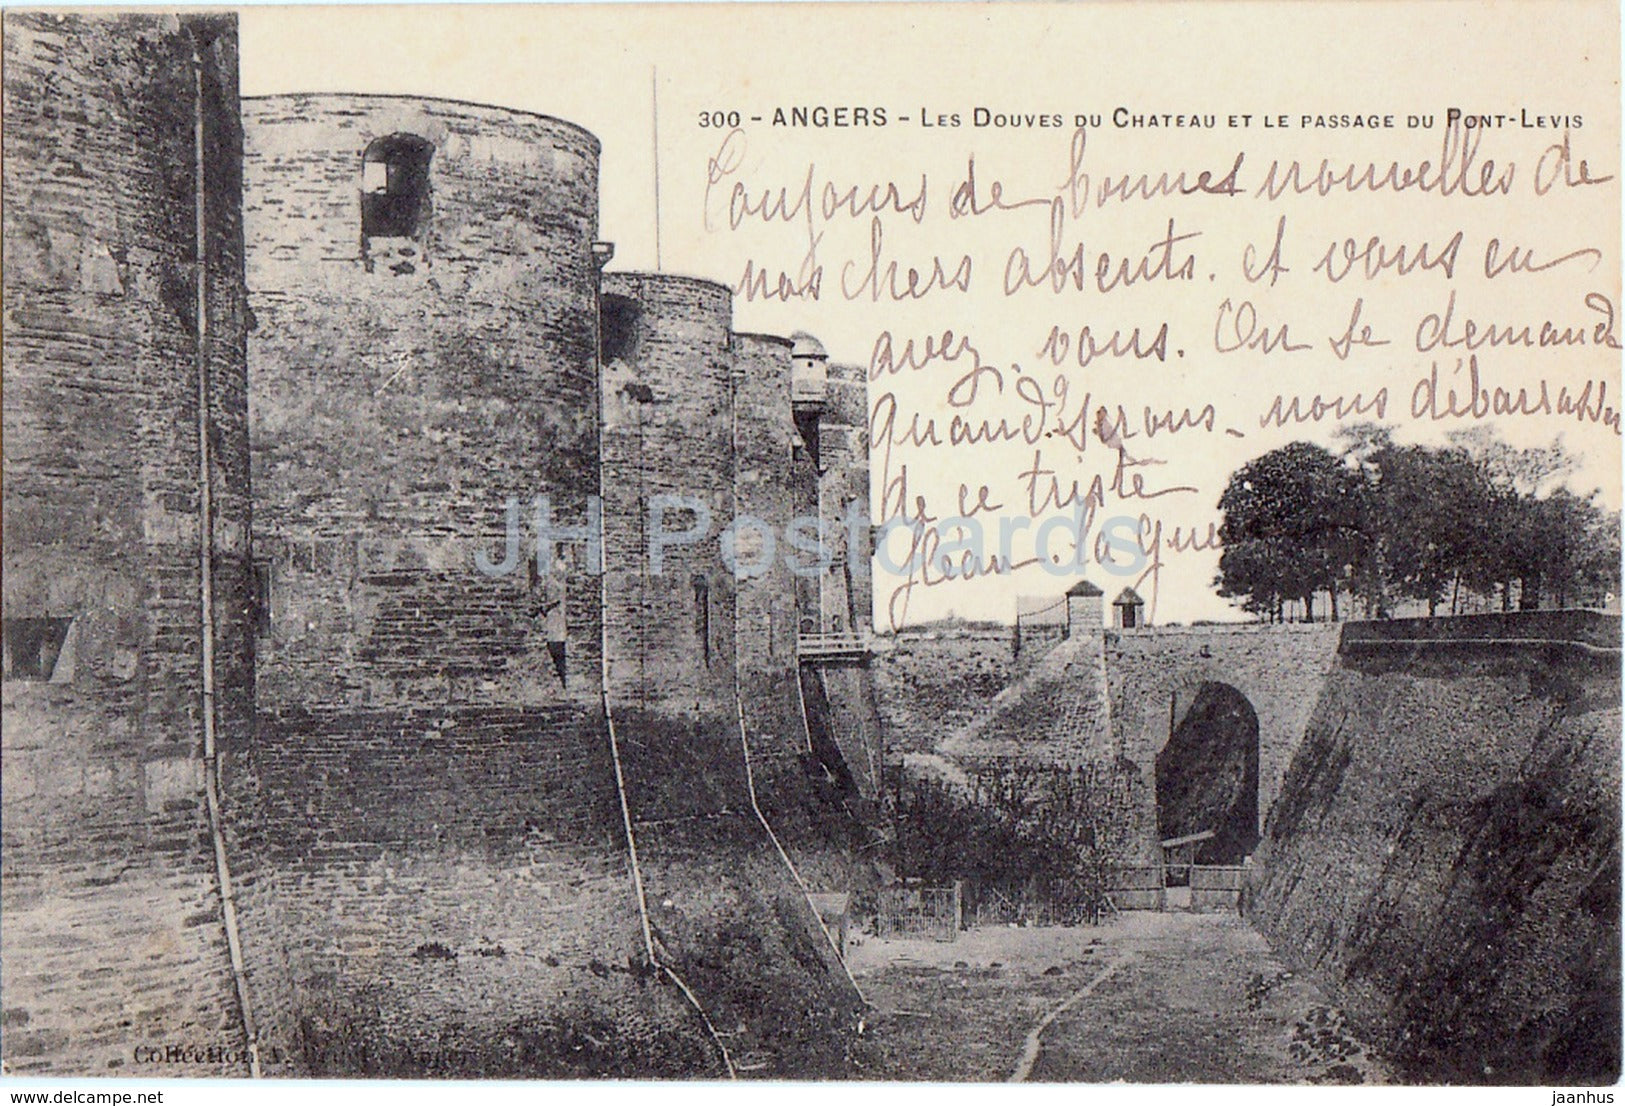 300 - ANGERS - LES DOUVES DU CHATEAU ET LE PASSAGE DU PONT-LEVIS
Toujours de bonnes nouvelles de
nos chers absents. et vous en
avez, vous. On se demande
quand? serons-nous débarrassés
de ce triste
fléau. la gue
JH Postcards
Collection A. Bruel - Angers
delcampe.net
jaanhus